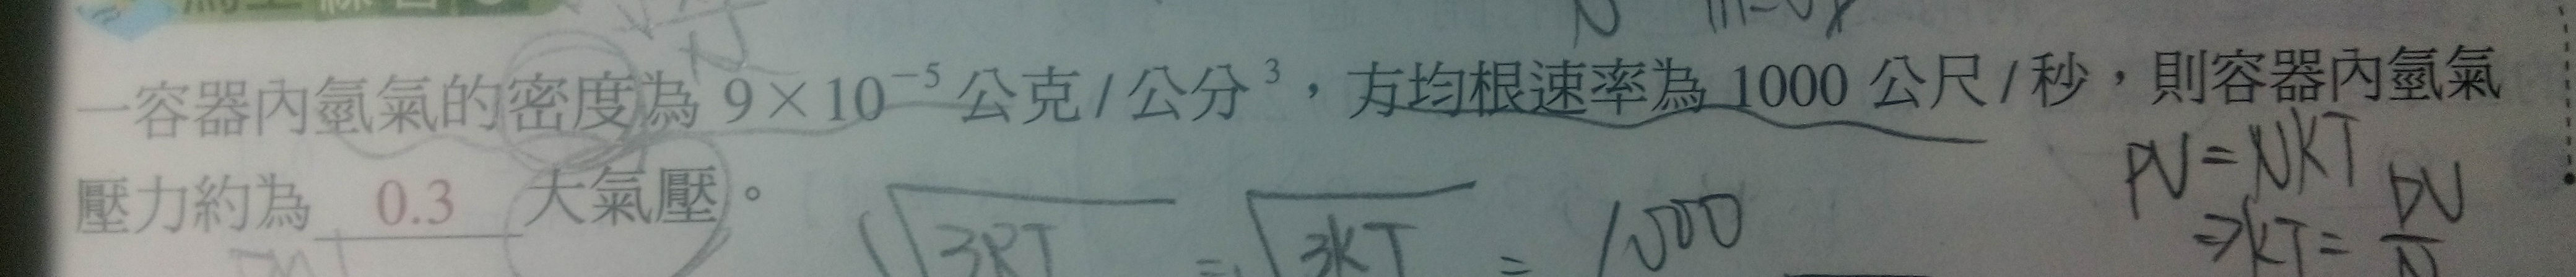 一容器內氫氣的密度為 9×10⁻⁵ 公克/公分³，方均根速率為 1000 公尺/秒，則容器內氫氣
壓力約為 0.3 大氣壓。
PV=NKT
√3RT = √3KT = 1000
⇒KT= PV/N